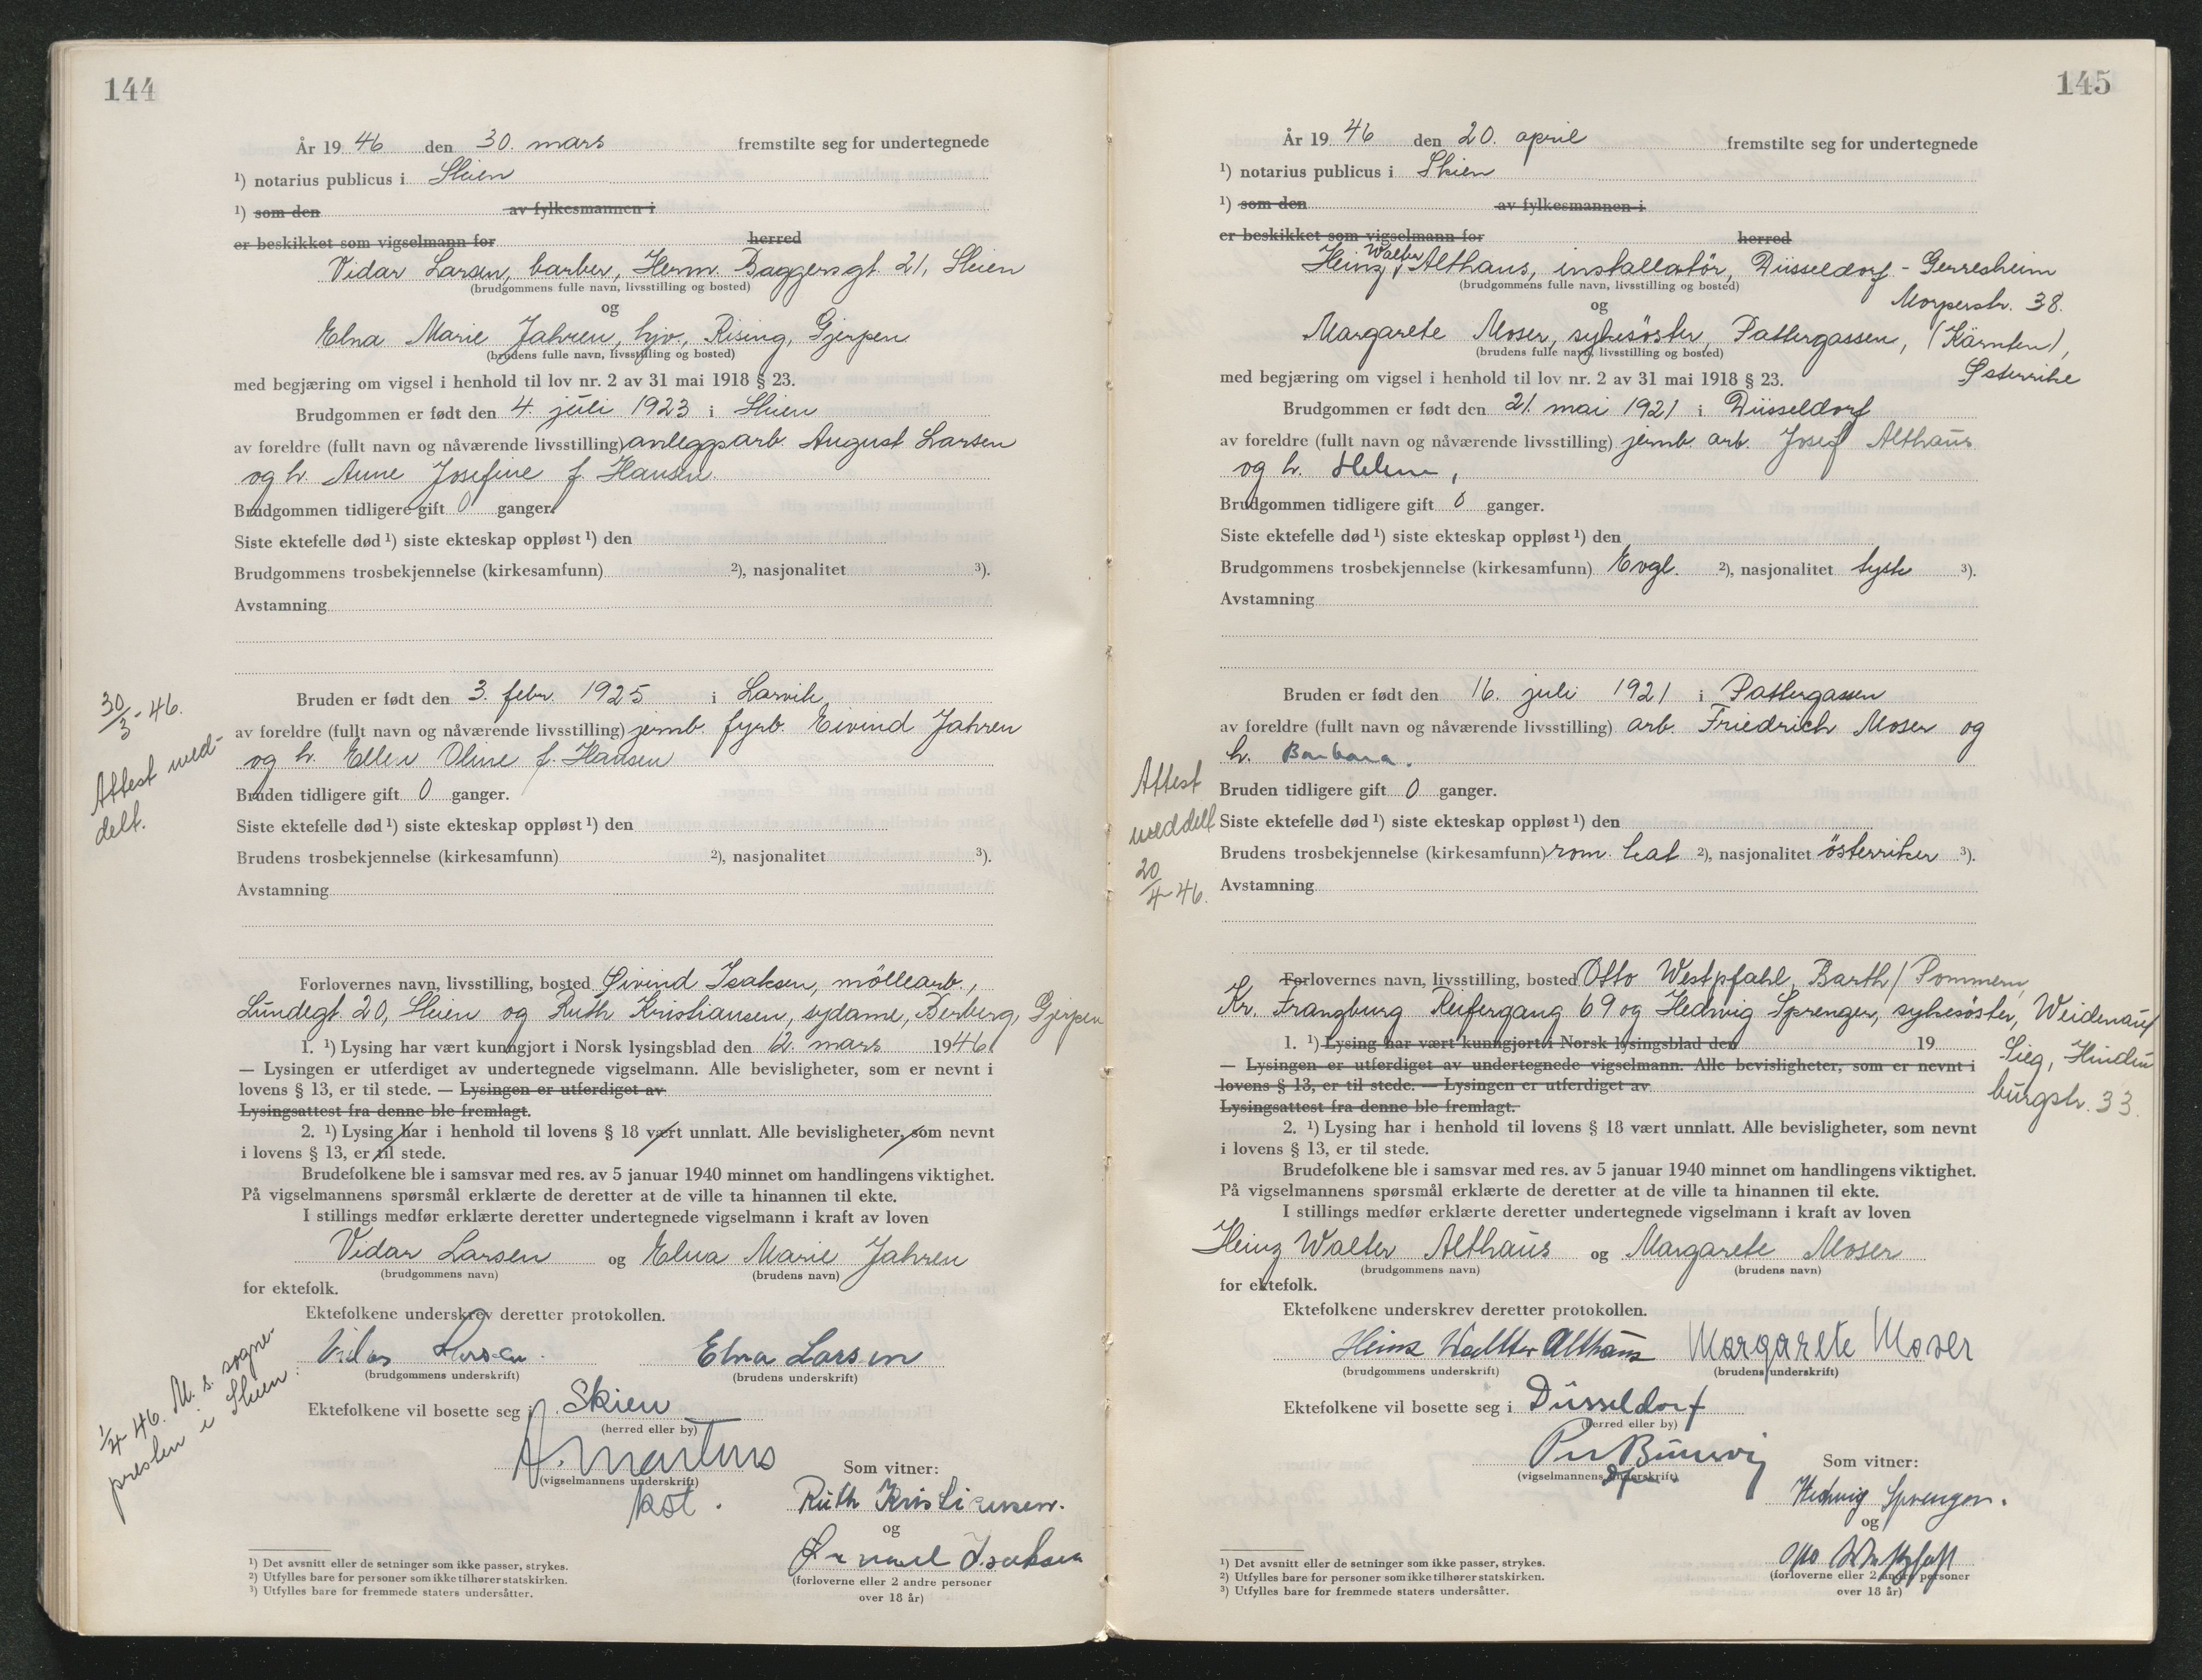 144
År 1946 den 30. mars fremstilte seg for undertegnede
¹) notarius publicus i Skien
¹) som den av fylkesmannen i
er beskikket som vigselmann for herred
Vidar Larsen, barber, Herm. Baggersgt. 21, Skien
(brudgommens fulle navn, livsstilling og bosted)
og
Elna Marie Jahren, hjv, Rising, Gjerpen
(brudens fulle navn, livsstilling og bosted)
med begjæring om vigsel i henhold til lov nr. 2 av 31 mai 1918 § 23.
Brudgommen er født den 4. juli 1923 i Skien
av foreldre (fullt navn og nåværende livsstilling) anleggsarb. August Larsen
og h. Anne Josefine f. Hansen.
Brudgommen tidligere gift 0 ganger.
Siste ektefelle død ¹) siste ekteskap oppløst ¹) den
Brudgommens trosbekjennelse (kirkesamfunn) ²), nasjonalitet ³).
Avstamning
30/3-46.
Attest med-
delt.
Bruden er født den 3. febr. 1925 i Larvik
av foreldre (fullt navn og nåværende livsstilling) jernb. fyrb. Eivind Jahren
og h. Ellen Oline f. Hansen
Bruden tidligere gift 0 ganger.
Siste ektefelle død ¹) siste ekteskap oppløst ¹) den
Brudens trosbekjennelse (kirkesamfunn) ²), nasjonalitet ³).
Avstamning
Forlovernes navn, livsstilling, bosted Øivind Isaksen, möllearb.,
Lundegt 20, Skien og Ruth Kristiansen, sydame, Berberg, Gjerpen
1. ¹) Lysing har vært kunngjort i Norsk lysingsblad den 12. mars 1946
— Lysingen er utferdiget av undertegnede vigselmann. Alle bevisligheter, som er nevnt i
lovens § 13, er til stede. — Lysingen er utferdiget av
Lysingsattest fra denne ble fremlagt.
2. ¹) Lysing har i henhold til lovens § 18 vært unnlatt. Alle bevisligheter, som nevnt
i lovens § 13, er til stede.
Brudefolkene ble i samsvar med res. av 5 januar 1940 minnet om handlingens viktighet.
På vigselmannens spørsmål erklærte de deretter at de ville ta hinannen til ekte.
I stillings medfør erklærte deretter undertegnede vigselmann i kraft av loven
Vidar Larsen og Elna Marie Jahren
(brudgommens navn) (brudens navn)
for ektefolk.
Ektefolkene underskrev deretter protokollen.
Vidar Larsen. Elna Larsen
(brudgommens underskrift) (brudens underskrift)
1/4 46. M. s. sogne-
presten i Skien.
Ektefolkene vil bosette seg i Skien
(herred eller by)
(vigselmannens underskrift)
Som vitner:
Ruth Kristiansen.
og
Isaksen
(forloverne eller 2 andre personer
over 18 år)
¹) Det avsnitt eller de setninger som ikke passer, strykes.
²) Utfylles bare for personer som ikke tilhører statskirken.
³) Utfylles bare for fremmede staters undersåtter.
145
År 1946 den 20. april fremstilte seg for undertegnede
¹) notarius publicus i Skien
¹) som den av fylkesmannen i
er beskikket som vigselmann for herred
Heinz Walter Althaus, installatör, Düsseldorf - Gerresheim
(brudgommens fulle navn, livsstilling og bosted) Morperstr. 38.
og
Margarete Moser, sykesöster, Pattergassen, (Kärnten),
(brudens fulle navn, livsstilling og bosted)
med begjæring om vigsel i henhold til lov nr. 2 av 31 mai 1918 § 23. Østerrike
Brudgommen er født den 21. mai 1921 i Düsseldorf
av foreldre (fullt navn og nåværende livsstilling) jernb. arb. Josef Althaus
og h. Helene,
Brudgommen tidligere gift 0 ganger.
Siste ektefelle død ¹) siste ekteskap oppløst ¹) den
Brudgommens trosbekjennelse (kirkesamfunn) Evgl. ²), nasjonalitet tysk ³).
Avstamning
Bruden er født den 16. juli 1921 i Pattergassen
av foreldre (fullt navn og nåværende livsstilling) arb. Friedrich Moser og
h. Barbara.
Attest
meddelt
20/4 46.
Bruden tidligere gift 0 ganger.
Siste ektefelle død ¹) siste ekteskap oppløst ¹) den
Brudens trosbekjennelse (kirkesamfunn) rom. kat ²), nasjonalitet österriker ³).
Avstamning
Forlovernes navn, livsstilling, bosted Otto Westpfahl, Barth/Pommern,
Kr. Franzburg Reifergang 69 og Hedwig Sprenger, sykesöster, Weidenau/
Sieg, Hinden
burgstr. 33.
1. ¹) Lysing har vært kunngjort i Norsk lysingsblad den 19
— Lysingen er utferdiget av undertegnede vigselmann. Alle bevisligheter, som er nevnt i
lovens § 13, er til stede. — Lysingen er utferdiget av
Lysingsattest fra denne ble fremlagt.
2. ¹) Lysing har i henhold til lovens § 18 vært unnlatt. Alle bevisligheter, som nevnt
i lovens § 13, er til stede.
Brudefolkene ble i samsvar med res. av 5 januar 1940 minnet om handlingens viktighet.
På vigselmannens spørsmål erklærte de deretter at de ville ta hinannen til ekte.
I stillings medfør erklærte deretter undertegnede vigselmann i kraft av loven
Heinz Walter Althaus og Margarete Moser
(brudgommens navn) (brudens navn)
for ektefolk.
Ektefolkene underskrev deretter protokollen.
Heinz Walter Althaus Margarete Moser
(brudgommens underskrift) (brudens underskrift)
Ektefolkene vil bosette seg i Düsseldorf
(herred eller by)
(vigselmannens underskrift)
Som vitner:
Hedwig Sprenger.
og
Otto Westpfahl
(forloverne eller 2 andre personer
over 18 år)
¹) Det avsnitt eller de setninger som ikke passer, strykes.
²) Utfylles bare for personer som ikke tilhører statskirken.
³) Utfylles bare for fremmede staters undersåtter.